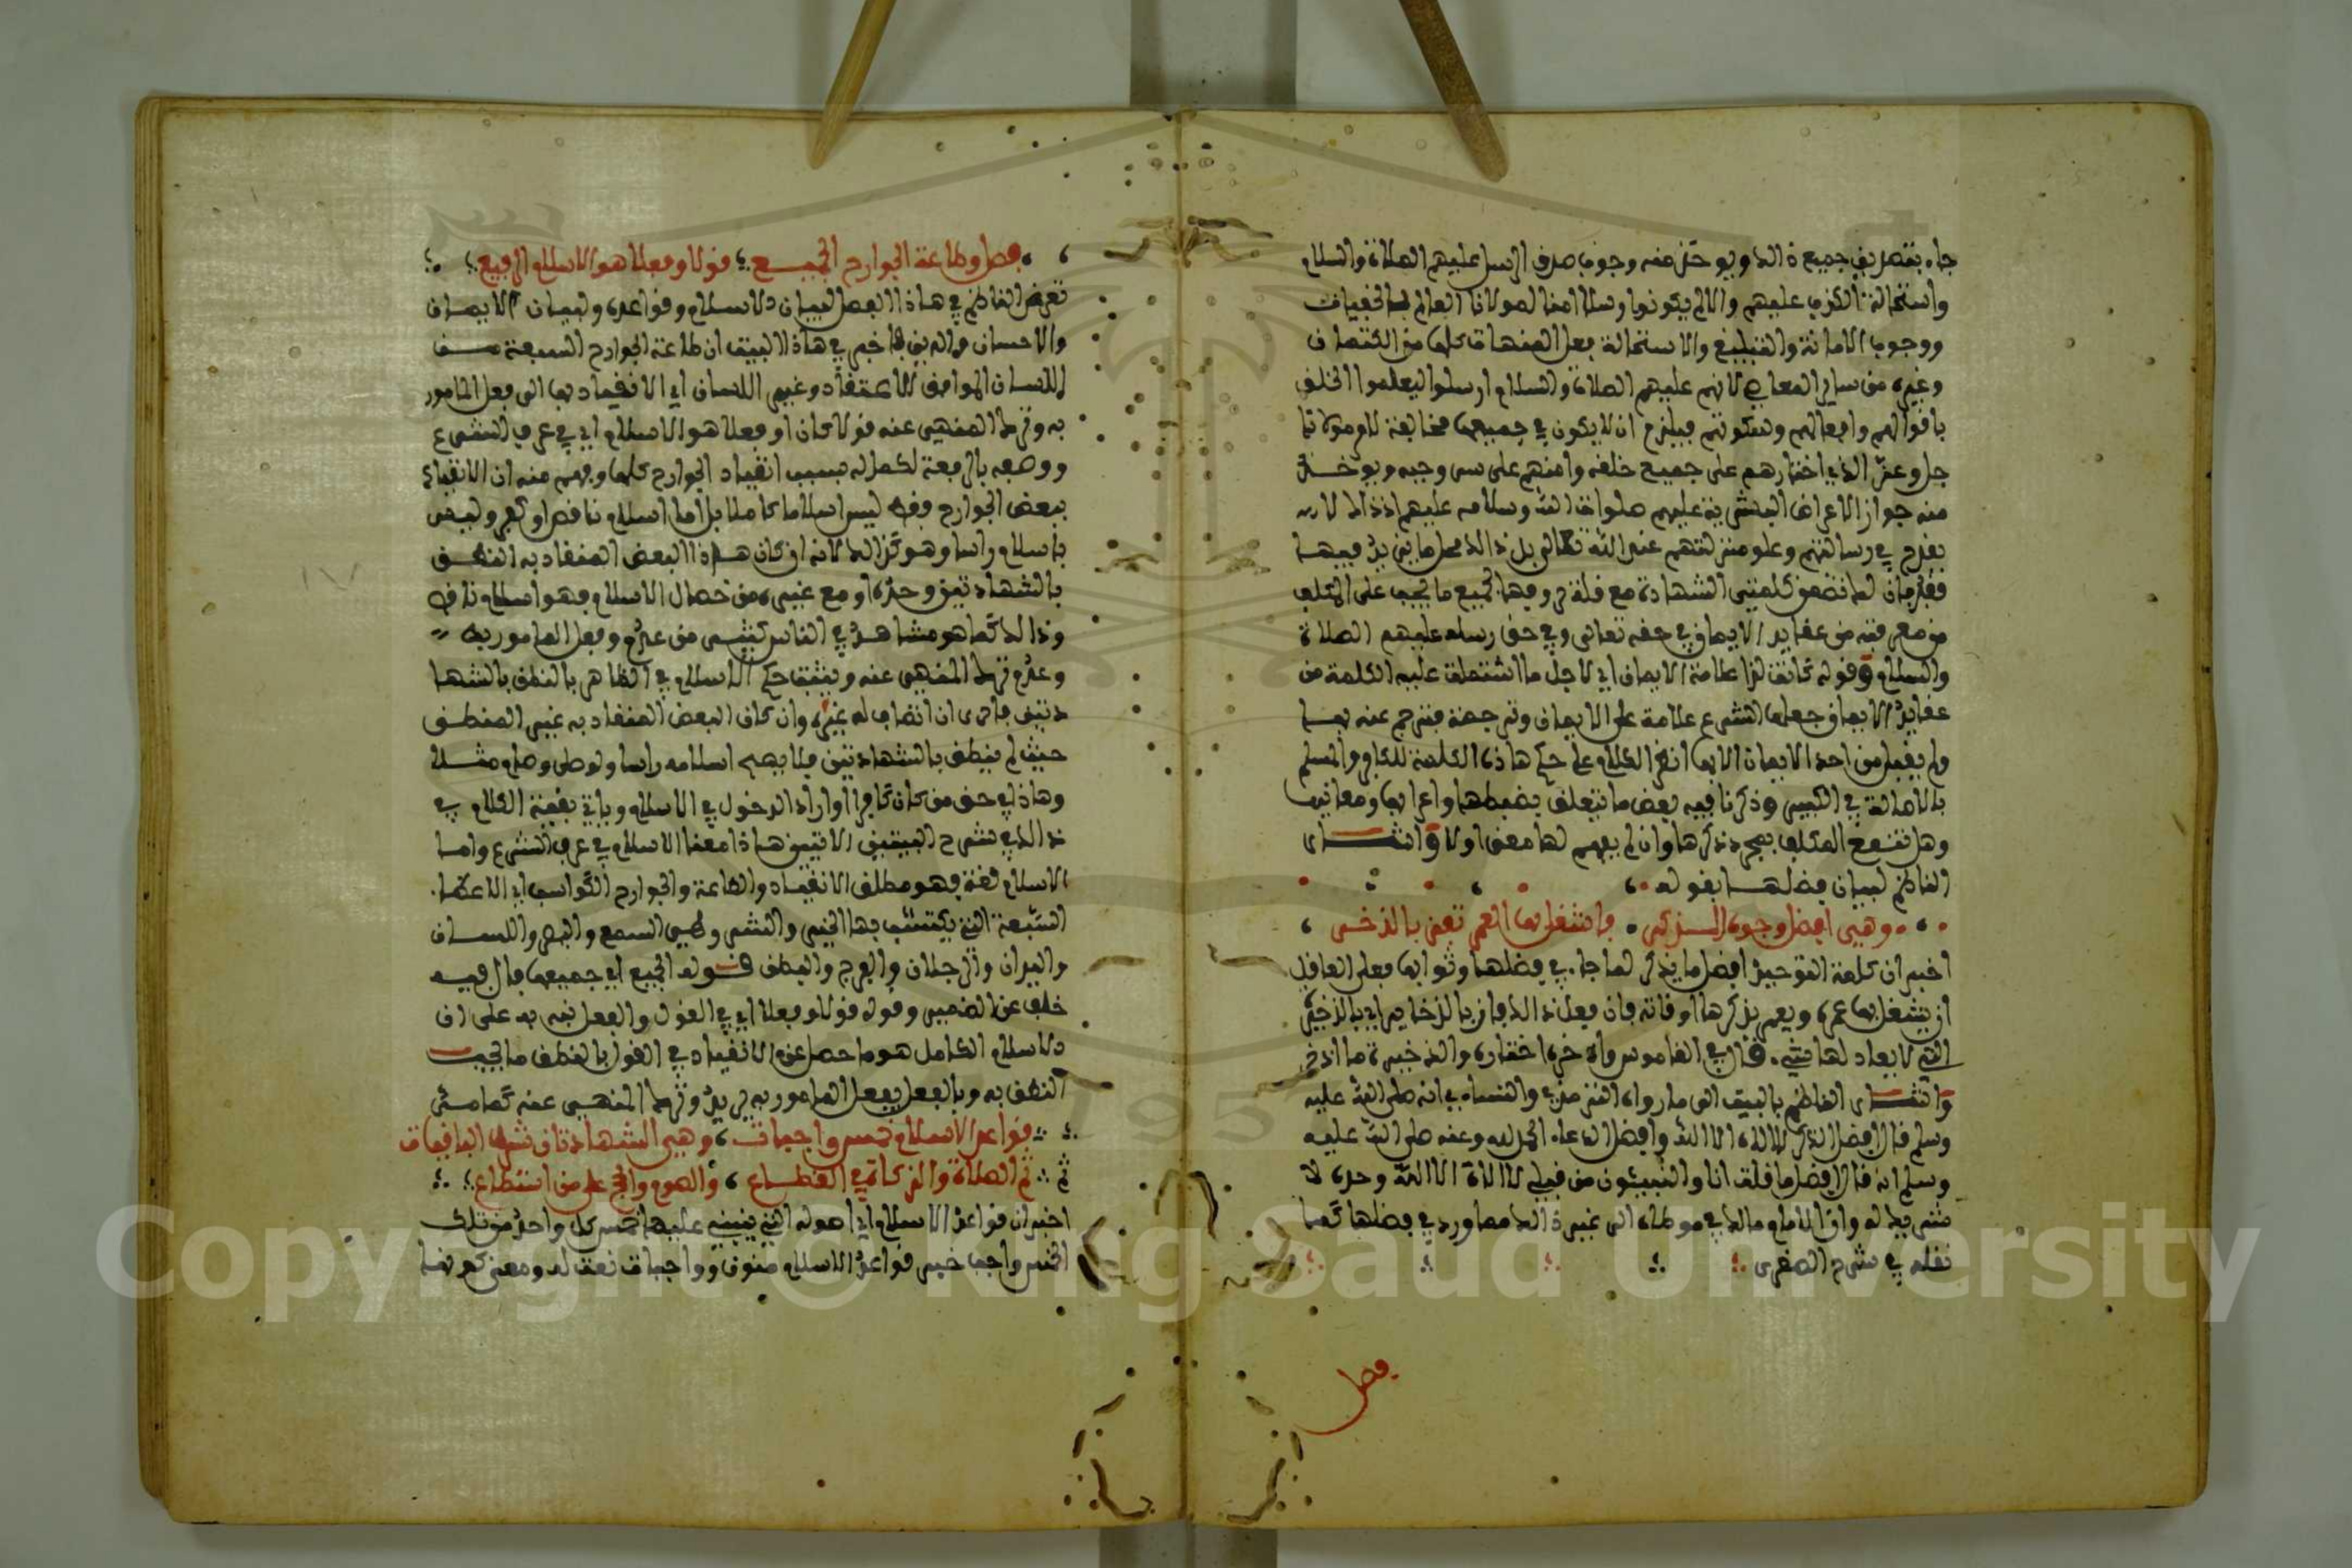 جاء بتصديق جميع ذالك ويوخذ منه وجوب صدق الرسل عليهم الصلاة والسلام
واستحالة الكذب عليهم والا لم يكونوا رسلا امنا لمولانا العالم بالخفيات
ووجوب الامانة والتبليغ والاستحالة فعل المنهيات كلها من الكتمان
وغيره من ساير المعاصي لانهم عليهم الصلاة والسلام ارسلوا ليعلموا الخلق
باقوالهم وافعالهم وسكوتهم فيلزم ان لا يكون في جميعها مخالفة لامر مولانا
جل وعز الذي اختارهم على جميع خلقه وامنهم على سر وحيه ويوخذ
منه جواز الاعراض البشرية عليهم صلوات الله وسلامه عليهم اذ ذالك لا
يقدح في رسالتهم وعلو منزلتهم عند الله تعالى بل ذالك مما يزيد فيها
فقد بان لك تضمن كلمتي الشهادة مع قلة حروفها لجميع ما يجب على المكلف
من معرفته من عقايد الايمان في حقه تعالى وفي حق رسله عليهم الصلاة
والسلام وقوله كانت لذا علامة الايمان اي لاجل ما اشتملت عليه الكلمة من
عقايد الايمان جعلها الشرع علامة على الايمان وترجمة فترجم عنه بها
ولم يقبل من احد الايمان الا بها انظر الكلام على حكم هاذه الكلمة للكافر والمسلم
بالاصالة في الكبير وذكرنا فيه بعض ما يتعلق بضبطها واعرابها ومعانيها
وهل تنفع المكلف بمجرد ذكرها وان لم يفهم لها معنى اولا واشار
الناظم لبيان فضلها بقوله
وهي افضل وجوه الذكر فاشغل بها العمر تفز بالذخر
اخبر ان كلمة التوحيد افضل ما يذكر لما جاء في فضلها وثوابها فعلى العاقل
ان يشغل بها عمره ويعمر بذكرها اوقاته فان فعل ذالك فاز بالذخاير اي بالذخيرة
التي لا يعادلها شيء قال في القاموس واذخره اختاره والذخيرة ما اذخر
واشار الناظم بالبيت الى ما رواه الترمذي والنساءي انه صلى الله عليه
وسلم قال افضل الذكر لا الاه الا الله وافضل الدعاء الحمد لله وعنه صلى الله عليه
وسلم انه قال افضل ما قلت انا والنبيئون من قبلي لا الاه الا الله وحده لا
شريك له رواه الامام مالك في موطاه الى غير ذالك مما ورد في فضلها كما
نقله في شرح الصغرى
فصل
فصل وطاعة الجوارح الجميع قولا وفعلا هو الاسلام الرفيع
تعرض الناظم في هاذا الفصل لبيان الاسلام وقواعده ولبيان الايمان
والاحسان والدين فاخبر في هاذا البيت ان طاعة الجوارح السبعة من
اللسان الموافق للاعتقاد وغير اللسان اي الانقياد بها الى فعل المامور
به وترك المنهي عنه قولا كان او فعلا هو الاسلام اي في عرف الشرع
ووصفه بالرفعة لكماله بسبب انقياد الجوارح كلها ويفهم منه ان الانقياد
ببعض الجوارح فقط ليس اسلاما كاملا بل اما اسلام ناقص او كفر وليس
باسلام راسا وهو كذالك لانه ان كان هاذا البعض المنقاد به النطق
بالشهادتين وحده او مع غيره من خصال الاسلام فهو اسلام ناقص
وذالك كما هو مشاهد في الناس كثير من عدم فعل المامور به
وعدم ترك المنهي عنه ويثبت حكم الاسلام في الظاهر بالنطق بالشها
دتين فاحرى ان انضاف له غيره وان كان البعض المنقاد به غير المنطق
حيث لم ينطق بالشهادتين فلا يصح اسلامه راسا ولو صلى وصام مثلا
وهاذا في حق من كان كافرا واراد الدخول في الاسلام وياتي بقية الكلام في
ذالك في شرح البيتين الاتيين هاذا معنى الاسلام في عرف الشرع واما
الاسلام لغة فهو مطلق الانقياد والطاعة والجوارح الكواسب اي الاعضا
السبعة التي يكتسب بها الخير والشر وهي السمع والبصر واللسان
واليدان والرجلان والفرج والبطن قوله الجميع اي جميعها فال فيه
خلف عن الضمير وقوله قولا وفعلا اي في القول والفعل نبه به على ان
الاسلام الكامل هو ما حصل عن الانقياد في القول بالنطق ما يجب
النطق به وبالفعل بفعل المامور به وترك المنهي عنه كما مر
قواعد الاسلام خمس واجبات وهي الشهادتان شرط الباقيات
ثم الصلاة والزكاة في القطاع والصوم والحج على من استطاع
اخبر ان قواعد الاسلام اي اصوله التي بنيت عليها خمس كل واحد من تلك
الخمس واجب خبر قواعد الاسلام منون وواجبات نعت له ومعنى كونها